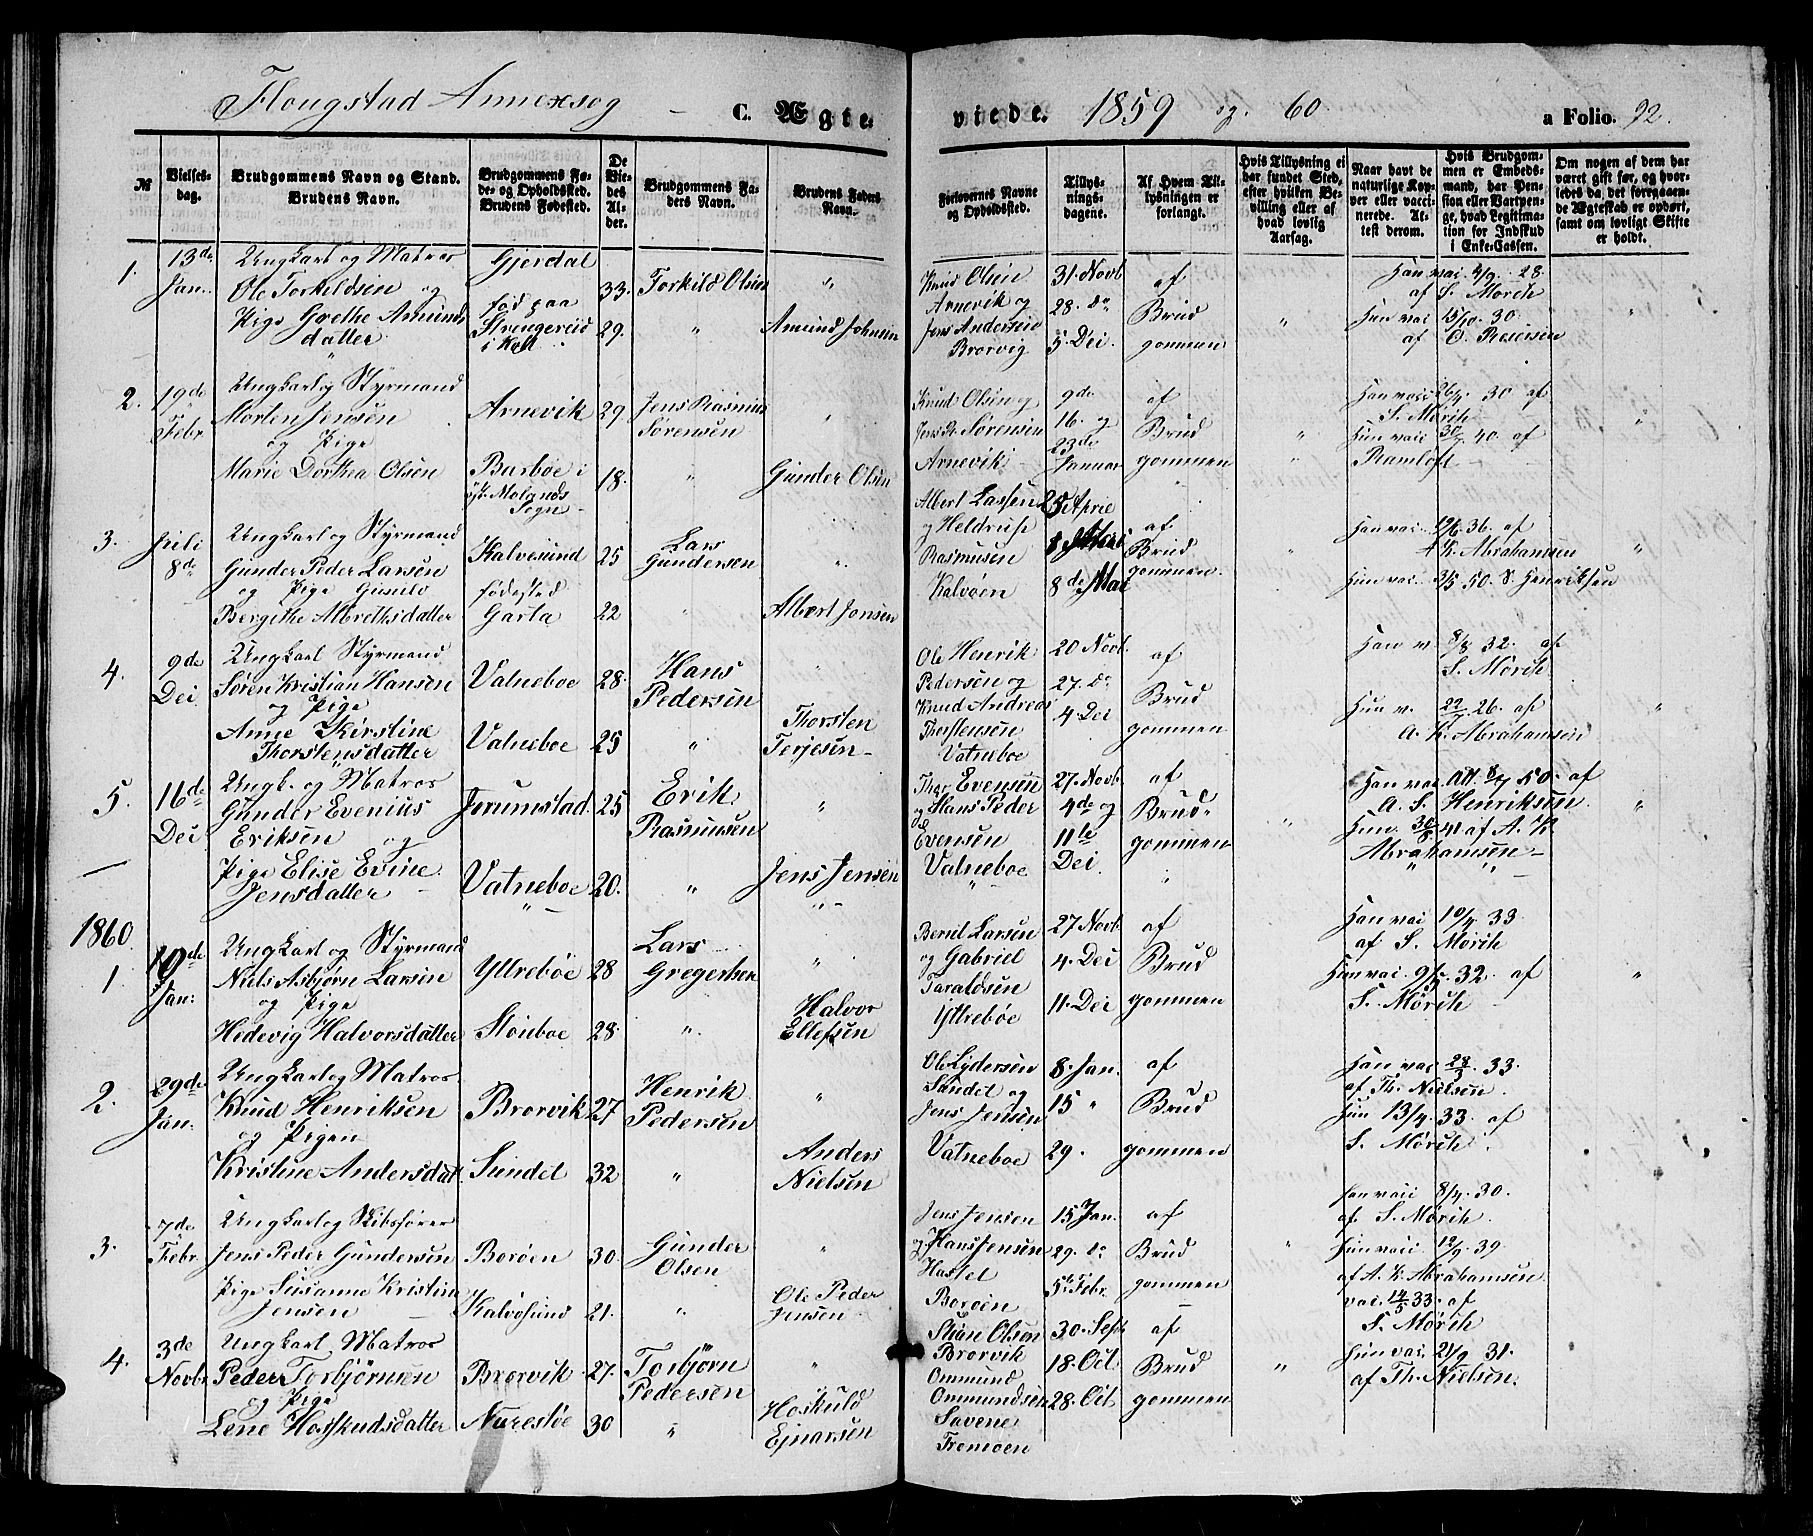 Flougstad Annexsog C. Ægte-viede. 1859 og 60. a Folio. 92.
№
Vielses-dag.
Brudgommens Navn og Stand. Brudens Navn.
Brudgommens Fø-de- og Opholdssted. Brudens Fødested.
De Vie-des Al-der.
Brudgommens Fa-ders Navn.
Brudens Faders Navn.
Forlovernes Navne og Opholdssted.
Tillys-nings-dagene.
Af Hvem Til-lysningen er forlangt.
Hvis Tillysning ei har fundet Sted, efter hvilken Be-villing eller af hvad lovlig Aarsag.
Naar havt de naturlige Kop-per eller vacci-nerede. At-test derom.
Hvis Brudgom-men er Embeds-mand, har Pen-sion eller Vartpen-ge, hvad Legitima-tion for Indskud i Enke-Cassen.
Om nogen af dem har været gift før, og hvor-ledes da det foregaaen-de Ægteskab er opført, samt om lovligt Skifte er holdt.
1. 13de Jan.
Ungkarl og Matros
Ole Torkildsen og
Pige Grethe Amunds
datter
Gjerdal
fød paa
Strengereid
i Holt
33.
29.
Torkild Olsen
Amund Johnsen
Knud Olsen
Arnevik og
Jens Andersen
Brorvig
31. Novb
28. do
5. Dec
af
Brud
gommen
Han vac 4/9. 28.
af S. Mörch
Hun vac 15/10. 30.
af O. Resersen
2. 19de Febr
Ungkarl og Styrmand
Morten Jensen
og Pige
Marie Dorthea Olsen
Arnevik
Barbøe i
Øst. Molands
Sogn
29.
18.
Jens Rasmus
Sørensen
Gunder Olsen
Knud Olsen og
Jens R. Sørensen
Arnevik
9de
16. og
23de
Januar
af
Brud
gommen
Han vac 26/7. 30 af
S. Mörch
Hun vac 30/7. 40. af
Ramloft
3. Juli 8de
Ungkarl og Styrmand
Gunder Peder Larsen
og Pige Gunild
Bergithe Albrethsdatter
Kalvesund
fødested
Garta
25
22
Lars
Gundersen
Albert Jonsen
Albert Lassen
og Heldrup
Rasmusen
Kalvöen
25 Aprie
8de Mai
af
Brud
gommen.
Han vac. 19/6. 36. af
A. K. Abrahamsen
Hun vac. 3/5. 50. S. Henriksen
4. 9de Dec
Ungkarl Styrmand
Søren Kristian Hansen
og Pige
Anne Kirstine
Thorstensdatter
Vatneboe
Vatneboe
28.
25
Hans
Pedersen
Thorsten
Terjesen
Ole Henrik
Pedersen og
Knud Andreas
Thorstensen
Vatneboe
20 Novb.
27. do
4 Dec
af
Brud
gommen
Han v. 8/8 32. af
S. Mörch
Hun v. 22/7. 26. af
A. K. Abrahamsen
5. 16de Dec
Ungk. og Matros
Gunder Evenius
Eriksen og
Pige Elise Evine
Jensdatter
Jerumstad.
Vatneboe
25
20.
Erik
Rasmusen
Jens Jensen
Thor Evensen
og Hans Peder
Evensen
Vatneboe
27. Novb.
4de og
11te
Dec
af
Brud-
gommen
Han vac. Att. 8/7 50. af
A. S. Henriksen.
Hun. 30/8 41 af A. K.
Abrahamsen
1860
1 19de Jan:
Ungkarl og Styrmand
Niels Asbjørn Larsen
og Pige
Hedevig Halvorsdatter
Yttrebøe
Støuboe
28
28.
Lars
Gregersen
Halvor
Ellefsen
Bernt Larsen
og Gabriel
Taraldsen
Yttrebøe
27 Novb.
4. Dec
11. Dec
af
Brud
gommen
Han vac 10/7. 33
af S. Mörch
Hun vac. 9/5. 32. af
S. Mörch
2. 29de Jan:
Ungkarl og Matros
Knud Henriksen
og Pigen
Kristine Andersdat
Brorvik
Sundet
27
32
Henrik
Pedersen
Anders
Nielsen
Ole Lydersen
Sundet og
Jens Jensen
Vatneboe
8. Jan.
15 "
29.
af
Brud
gommen
Han vac 28/5. 33.
af Th. Nielsen
Hun 13/7. 33. af
S. Mörch
3. 7de Febr
Ungkarl og Skibsfører
Jens Peder Gundersen
Pige Susanne Kristine
Jensen
Borøen
Kalvøsund
30.
21.
Gunder
Olsen
Ole Peder
Jensen
Jens Jensen
og Hans Jensen
Hastel
Borøen
15 Jan.
29. do
5te Febr.
af
Brud
gommen
Han vacc 8/7. 30.
af. S. Mörch.
Hun vacc 12/9. 39.
af A. K. Abrahamsen
4. 3de Novbr
Ungkarl, Matros
Peder Torbjörnsen
og Pige
Lene Hosskudsdatter
Brorvik
Narestøe
27.
30
Torbjörn
Pedersen
Hoskuld
Ejnarsen
Stian Olsen
Brorvik
Ommund
Ommundsen
Savene
Tromöen
30. Sept
18. Oct
28. Oct
af
Brud
gommen
vac. 14/5 33. af
S. Mörch
Hun vac. 21/9. 31.
af Th. Nielsen.